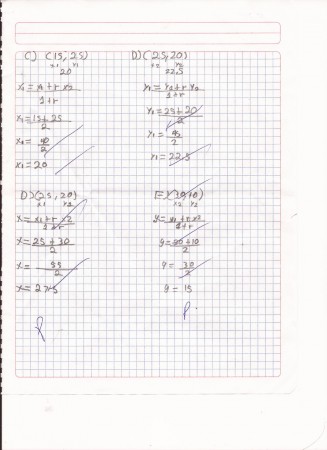 C) (15, 25)
x₁ y₁
20
x₁ = x₁ + r x₂
1+r
x₁ = 15 + 25
2
x₁ = 40
2
x₁ = 20
D) (25, 20)
x₂ y₂
22.5
y₁ = y₁ + r y₂
1+r
y₁ = 25 + 20
2
y₁ = 45
2
y₁ = 22.5
D) (25, 20)
x₁
x = x₁ + r x₂
1+r
x = 25 + 30
2
x = 55
2
x = 27.5
E) (30, 10)
x₂ y₂
y = y₁ + r x₂
1+r
y = 20 + 10
2
y = 30
2
y = 15